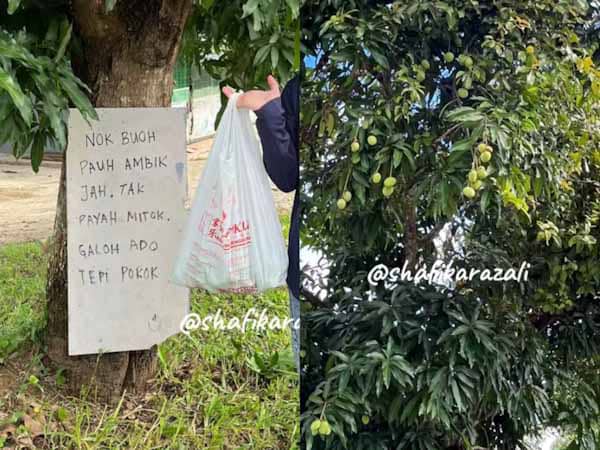 NOK BUOH
PAUH AMBIK
JAH. TAK
PAYAH MITOK.
GALOH ADO
TEPI POKOK
@shafikara
@shafikarazali